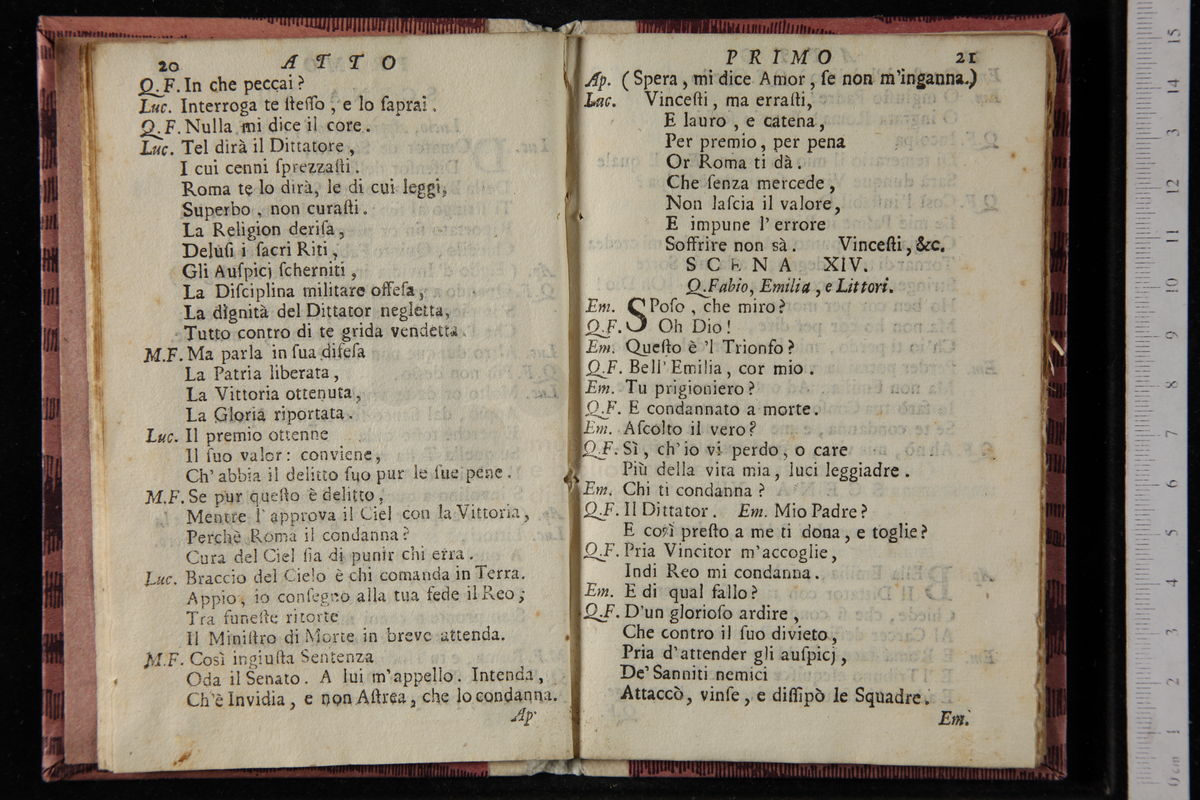 20 ATTO
Q.F. In che peccai?
Luc. Interroga te ſteſſo, e lo ſaprai.
Q.F. Nulla mi dice il core.
Luc. Tel dirà il Dittatore,
I cui cenni ſprezzaſti.
Roma te lo dirà, le di cui leggi,
Superbo, non curaſti.
La Religion deriſa,
Deluſi i ſacri Riti,
Gli Auſpicj ſcherniti,
La Diſciplina militare offeſa,
La dIgnità del Dittator negletta,
Tutto contro di te grida vendetta.
M.F. Ma parla in ſua difeſa
La Patria liberata,
La Vittoria ottenuta,
La Gloria riportata.
Luc. Il premio ottenne
Il ſuo valor: conviene,
Ch'abbia il delitto ſuo pur le ſue pene.
M.F. Se pur queſto è delitto,
Mentre l'approva il Ciel con la Vittoria,
Perchè Roma il condanna?
Cura del Ciel ſia di punir chi erra.
Luc. Braccio del Cielo è chi comanda in Terra.
Appio, io conſegno alla tua fede il Reo;
Tra funeſte ritorte
Il Miniſtro di Morte in breve attenda.
M.F. Così ingiuſta Sentenza
Oda il Senato. A lui m'appello. Intenda,
Ch'è Invidia, e non Aſtrea, che lo condanna.
Ap
PRIMO 21
Ap. (Spera, mi dice Amor, ſe non m'inganna.)
Luc. Vinceſti, ma erraſti,
E lauro, e catena,
Per premio, per pena
Or Roma ti dà.
Che ſenza mercede,
Non laſcia il valore,
E impune l'errore
Soffrire non sà. Vinceſti, &c.
SCENA XIV.
Q.Fabio, Emilia, e Littori.
Em. SPoſo, che miro?
Q.F. Oh Dio!
Em. Queſto è 'l Trionfo?
Q.F. Bell'Emilia, cor mio.
Em. Tu prigioniero?
Q.F. E condannato a morte.
Em. Aſcolto il vero?
Q.F. Sì, ch'io vi perdo, o care
Più della vita mia, luci leggiadre.
Em. Chi ti condanna?
Q.F. Il Dittator. Em. Mio Padre?
E così preſto a me ti dona, e toglie?
Q.F. Pria Vincitor m'accoglie,
Indi Reo mi condanna.
Em. E di qual fallo?
Q.F. D'un glorioſo ardire,
Che contro il ſuo divieto,
Pria d'attender gli auſpicj,
De'Sanniti nemici
Attaccò, vinſe, e diſſipò le Squadre.
Em.
15
14
13
12
11
10
9
8
7
6
5
4
3
2
1
0 cm